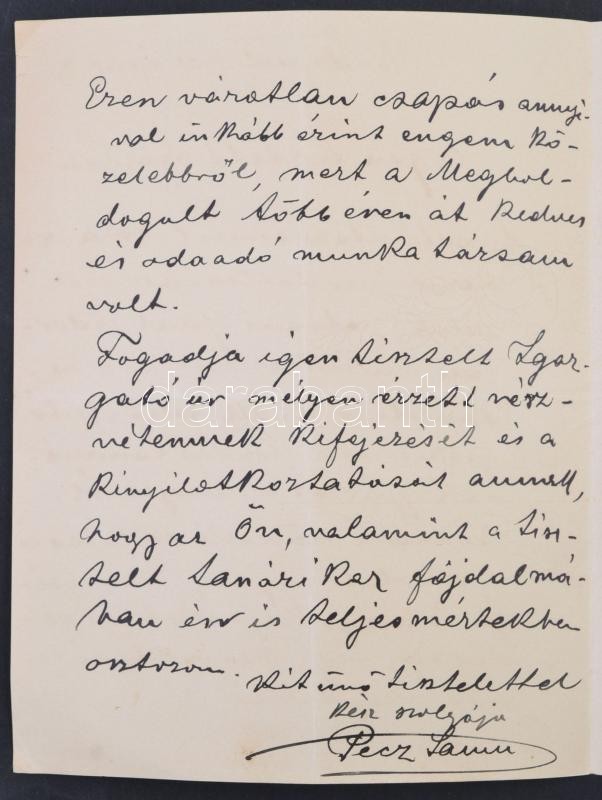 Ezen váratlan csapás annyi-
val inkább érint engem kö-
zelebbről, mert a Megbol-
dogult több éven át kedves
és odaadó munkatársam
volt.
Fogadja igen tisztelt Igaz-
gató úr mélyen érzett rész-
vétemnek kifejezését és a
kinyilatkoztatását annak,
hogy az Ön, valamint a tisz-
telt tanári kar fájdalmá-
ban én is teljes mértékben
osztozom.
Kitünő tisztelettel
kész szolgája
Pecz Samu
darabanth